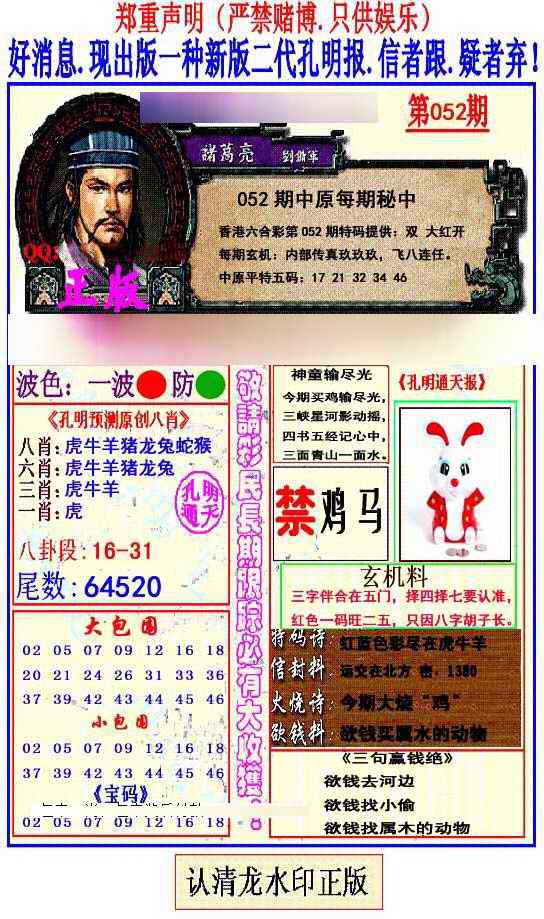 郑重声明（严禁赌博.只供娱乐）
好消息.现出版一种新版二代孔明报.信者跟.疑者弃!
第052期
諸葛亮
052 期中原每期秘中
香港六合彩第 052 期特码提供：双 大红开
每期玄机：内部传真玖玖玖，飞八连任。
中原平特五码：17 21 32 34 46
QQ:
正版
波色：一波 防
《孔明预测原创八肖》
八肖:虎牛羊猪龙兔蛇猴
六肖:虎牛羊猪龙兔
三肖:虎牛羊
一肖:虎
孔明
通天
八卦段:16-31
尾数:64520
大包围
02 05 07 09 12 16 18
20 21 24 26 31 33 36
37 39 42 43 44 45 46
小包围
02 05 07 09 12 16 18
37 39 42 43 44 45 46
《宝码》
02 05 07 09 12 16 18
敬請彩民長期跟踪必有大收獲!
神童输尽光
今期买鸡输尽光，
三峡星河影动摇，
四书五经记心中，
三面青山一面水。
《孔明通天报》
禁 鸡 马
玄机料
三字伴合在五门，择四择七要认准，
红色一码旺二五，只因八字胡子长。
特码诗:虹蓝色彩尽在虎牛羊
信封料:运交在北方 密．1380
火烧诗:今期大烧“鸡”
欲钱料:欲钱买属水的动物
《三句赢钱绝》
欲钱去河边
欲钱找小偷
欲钱找属木的动物
认清龙水印正版